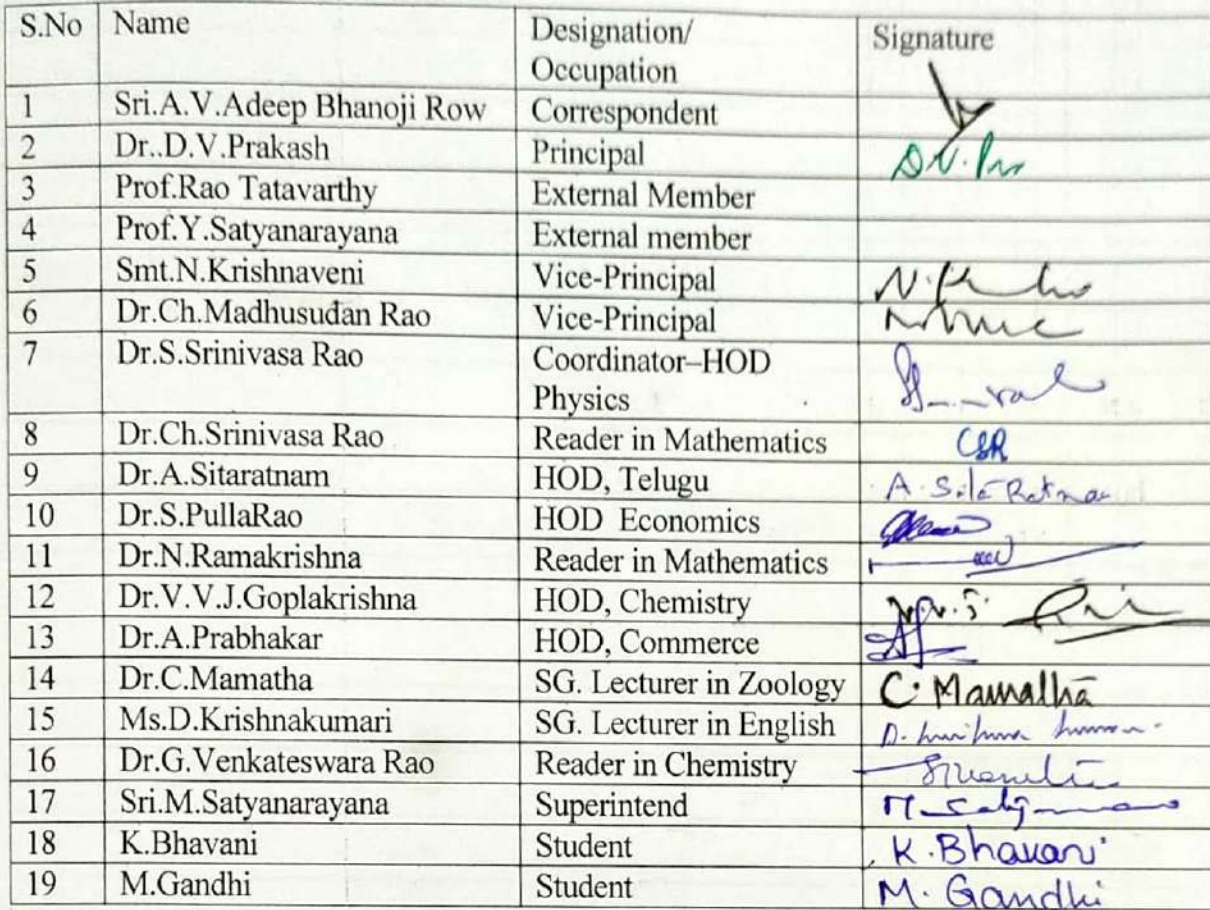 S.No Name Designation/ Signature
Occupation
1 Sri.A.V.Adeep Bhanoji Row Correspondent
2 Dr..D.V.Prakash Principal
3 Prof.Rao Tatavarthy External Member
4 Prof.Y.Satyanarayana External member
5 Smt.N.Krishnaveni Vice-Principal
6 Dr.Ch.Madhusudan Rao Vice-Principal
7 Dr.S.Srinivasa Rao Coordinator–HOD
Physics
8 Dr.Ch.Srinivasa Rao Reader in Mathematics CSR
9 Dr.A.Sitaratnam HOD, Telugu A.
10 Dr.S.PullaRao HOD Economics
11 Dr.N.Ramakrishna Reader in Mathematics
12 Dr.V.V.J.Goplakrishna HOD, Chemistry
13 Dr.A.Prabhakar HOD, Commerce
14 Dr.C.Mamatha SG. Lecturer in Zoology C. Mamatha
15 Ms.D.Krishnakumari SG. Lecturer in English D.
16 Dr.G.Venkateswara Rao Reader in Chemistry
17 Sri.M.Satyanarayana Superintend
18 K.Bhavani Student K.Bhavani
19 M.Gandhi Student M. Gandhi